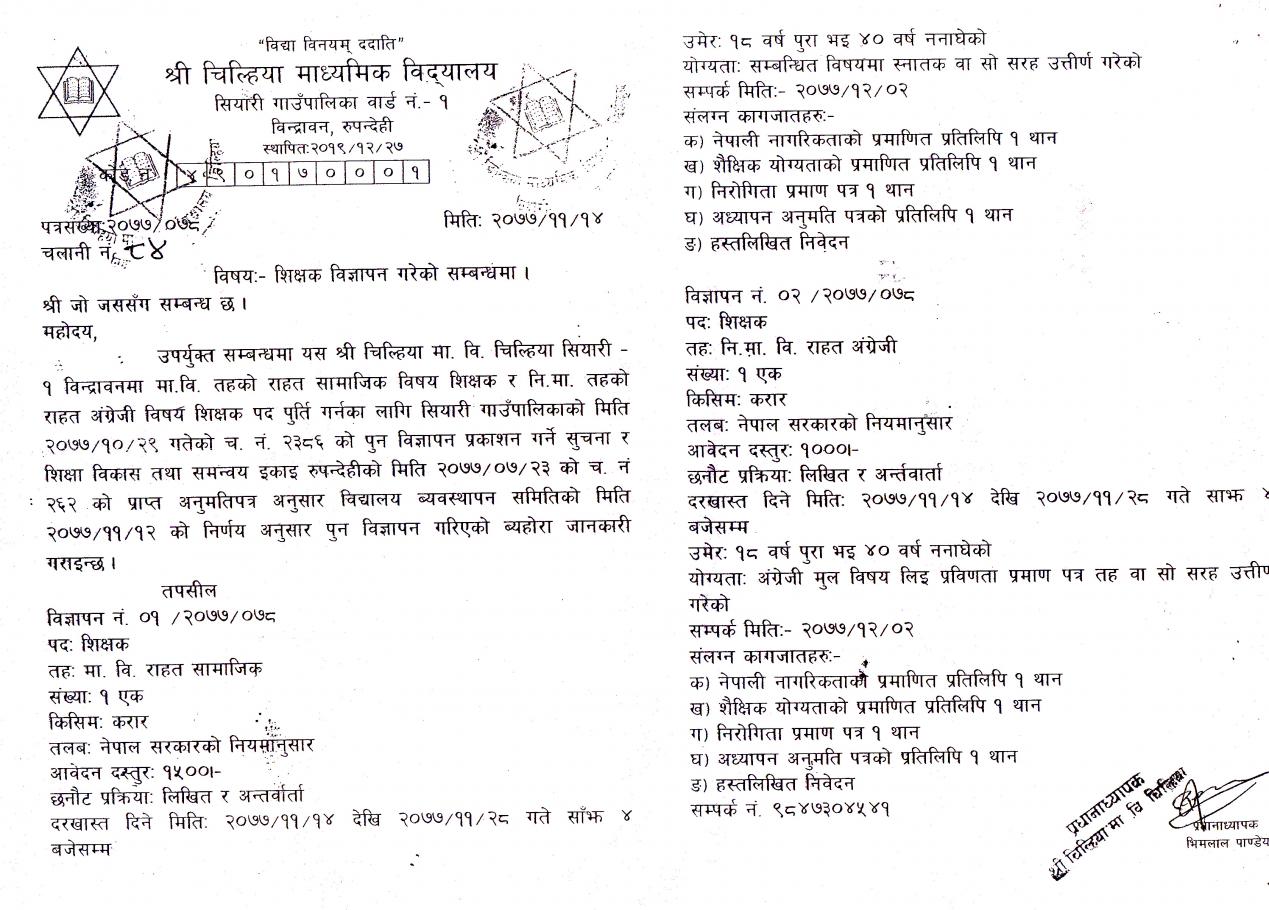 “विद्या विनयम् ददाति”
श्री चिल्हिया माध्यमिक विद्यालय
सियारी गाउँपालिका वार्ड नं.- १
विन्द्रावन, रुपन्देही
स्थापित:२०१९/१२/२७
कोड नं ४ ९ ० १ ७ ० ० ० १
पत्रसंख्या:२०७७/०७८
मिति: २०७७/११/१४
चलानी नं. ८४
विषय:- शिक्षक विज्ञापन गरेको सम्बन्धमा ।
श्री जो जससँग सम्बन्ध छ ।
महोदय,
उपर्युक्त सम्बन्धमा यस श्री चिल्हिया मा. वि. चिल्हिया सियारी -
१ विन्द्रावनमा मा.वि. तहको राहत सामाजिक विषय शिक्षक र नि.मा. तहको
राहत अंग्रेजी विषय शिक्षक पद पुर्ति गर्नका लागि सियारी गाउँपालिकाको मिति
२०७७/१०/२९ गतेको च. नं. २३८६ को पुन विज्ञापन प्रकाशन गर्ने सुचना र
शिक्षा विकास तथा समन्वय इकाइ रुपन्देहीको मिति २०७७/०७/२३ को च. नं
२६२ को प्राप्त अनुमतिपत्र अनुसार विद्यालय ब्यवस्थापन समितिको मिति
२०७७/११/१२ को निर्णय अनुसार पुन विज्ञापन गरिएको ब्यहोरा जानकारी
गराइन्छ ।
तपसील
विज्ञापन नं. ०१ /२०७७/०७८
पद: शिक्षक
तह: मा. वि. राहत सामाजिक
संख्या: १ एक
किसिम: करार
तलब: नेपाल सरकारको नियमानुसार
आवेदन दस्तुर: १५००।-
छनौट प्रक्रिया: लिखित र अन्तर्वार्ता
दरखास्त दिने मिति: २०७७/११/१४ देखि २०७७/११/२८ गते साँझ ४
बजेसम्म
उमेर: १८ वर्ष पुरा भइ ४० वर्ष ननाघेको
योग्यता: सम्बन्धित विषयमा स्नातक वा सो सरह उत्तीर्ण गरेको
सम्पर्क मिति:- २०७७/१२/०२
संलग्न कागजातहरु:-
क) नेपाली नागरिकताको प्रमाणित प्रतिलिपि १ थान
ख) शैक्षिक योग्यताको प्रमाणित प्रतिलिपि १ थान
ग) निरोगिता प्रमाण पत्र १ थान
घ) अध्यापन अनुमति पत्रको प्रतिलिपि १ थान
ङ) हस्तलिखित निवेदन
विज्ञापन नं. ०२ /२०७७/०७८
पद: शिक्षक
तह: नि.मा. वि. राहत अंग्रेजी
संख्या: १ एक
किसिम: करार
तलब: नेपाल सरकारको नियमानुसार
आवेदन दस्तुर: १०००।-
छनौट प्रक्रिया: लिखित र अर्न्तवार्ता
दरखास्त दिने मिति: २०७७/११/१४ देखि २०७७/११/२८ गते साझ ४
बजेसम्म
उमेर: १८ वर्ष पुरा भइ ४० वर्ष ननाघेको
योग्यता: अंग्रेजी मुल विषय लिइ प्रविणता प्रमाण पत्र तह वा सो सरह उत्तीर्ण
गरेको
सम्पर्क मिति:- २०७७/१२/०२
संलग्न कागजातहरु:-
क) नेपाली नागरिकताको प्रमाणित प्रतिलिपि १ थान
ख) शैक्षिक योग्यताको प्रमाणित प्रतिलिपि १ थान
ग) निरोगिता प्रमाण पत्र १ थान
घ) अध्यापन अनुमति पत्रको प्रतिलिपि १ थान
ङ) हस्तलिखित निवेदन
सम्पर्क नं. ९८४७३०४५४१
प्रधानाध्यापक
श्री चिल्हिया मा वि चिल्हिया
प्रधानाध्यापक
भिमलाल पाण्डेय